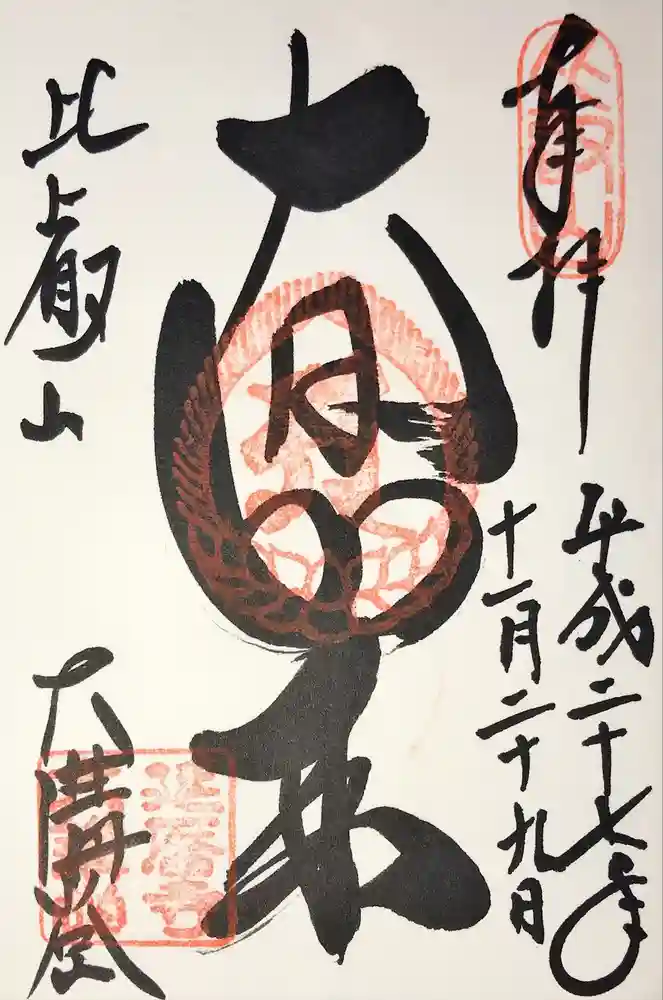 奉拝
平成二十七年
十一月二十九日
大日如来
比叡山
大講堂
延暦寺